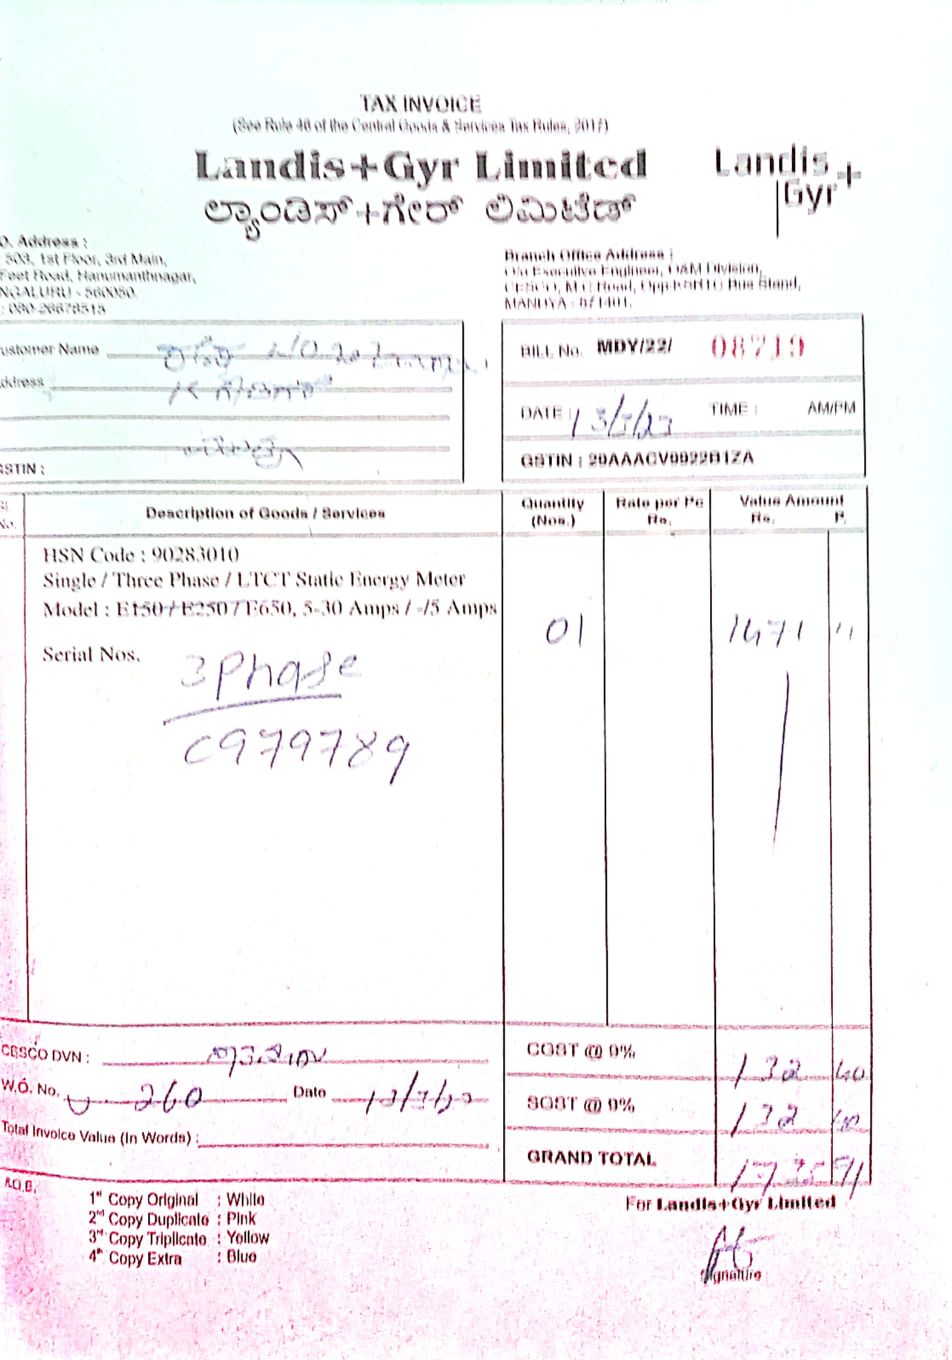 TAX INVOICE
(See Rule 46 of the Central Goods & Services Tax Rules, 2017)
Landis+Gyr Limited
ಲ್ಯಾಂಡಿಸ್+ಗೇರ್ ಲಿಮಿಟೆಡ್
Landis+
Gyr
O. Address :
503, 1st Floor, 3rd Main,
Feet Road, Hanumanthnagar,
NGALURU - 560050.
: 080-26678515
Branch Office Address :
O/o Executive Engineer, O&M Division,
CESCO, M.C.Road, Opp.KSRTC Bus Stand,
MANDYA - 571401.
ustomer Name
ddress
GSTIN :
BILL No. MDY/22/ 08719
DATE : TIME : AM/PM
GSTIN : 29AAACV9922B1ZA
Sl. No. Description of Goods / Services Quantity (Nos.) Rate per Pc Rs. Value Amount Rs. P.
HSN Code : 90283010
Single / Three Phase / LTCT Static Energy Meter
Model : E150 / E250 / E650, 5-30 Amps / -/5 Amps
01 1471 11
Serial Nos.
3 Phase
C979789
CESCO DVN :
CGST @ 9% 132 40
W.O. No. 260 Date
SGST @ 9% 132 40
Total Invoice Value (In Words) :
GRAND TOTAL
1st Copy Original : White
2nd Copy Duplicate : Pink
3rd Copy Triplicate : Yellow
4th Copy Extra : Blue
For Landis+Gyr Limited
Signature